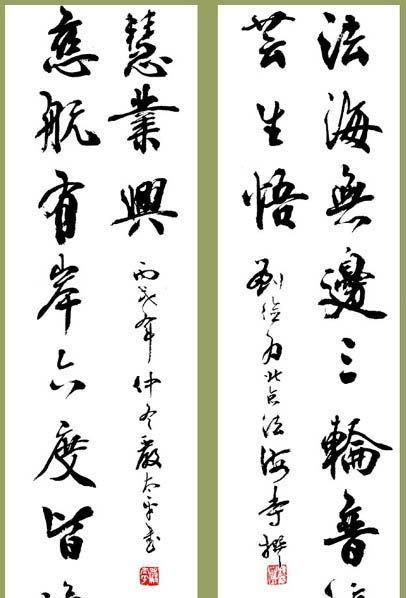 法海無邊三輪普
芸生悟
劉為北京法海寺撰
慈航有岸六度皆
慧業興
丙戌年仲冬嚴太平書